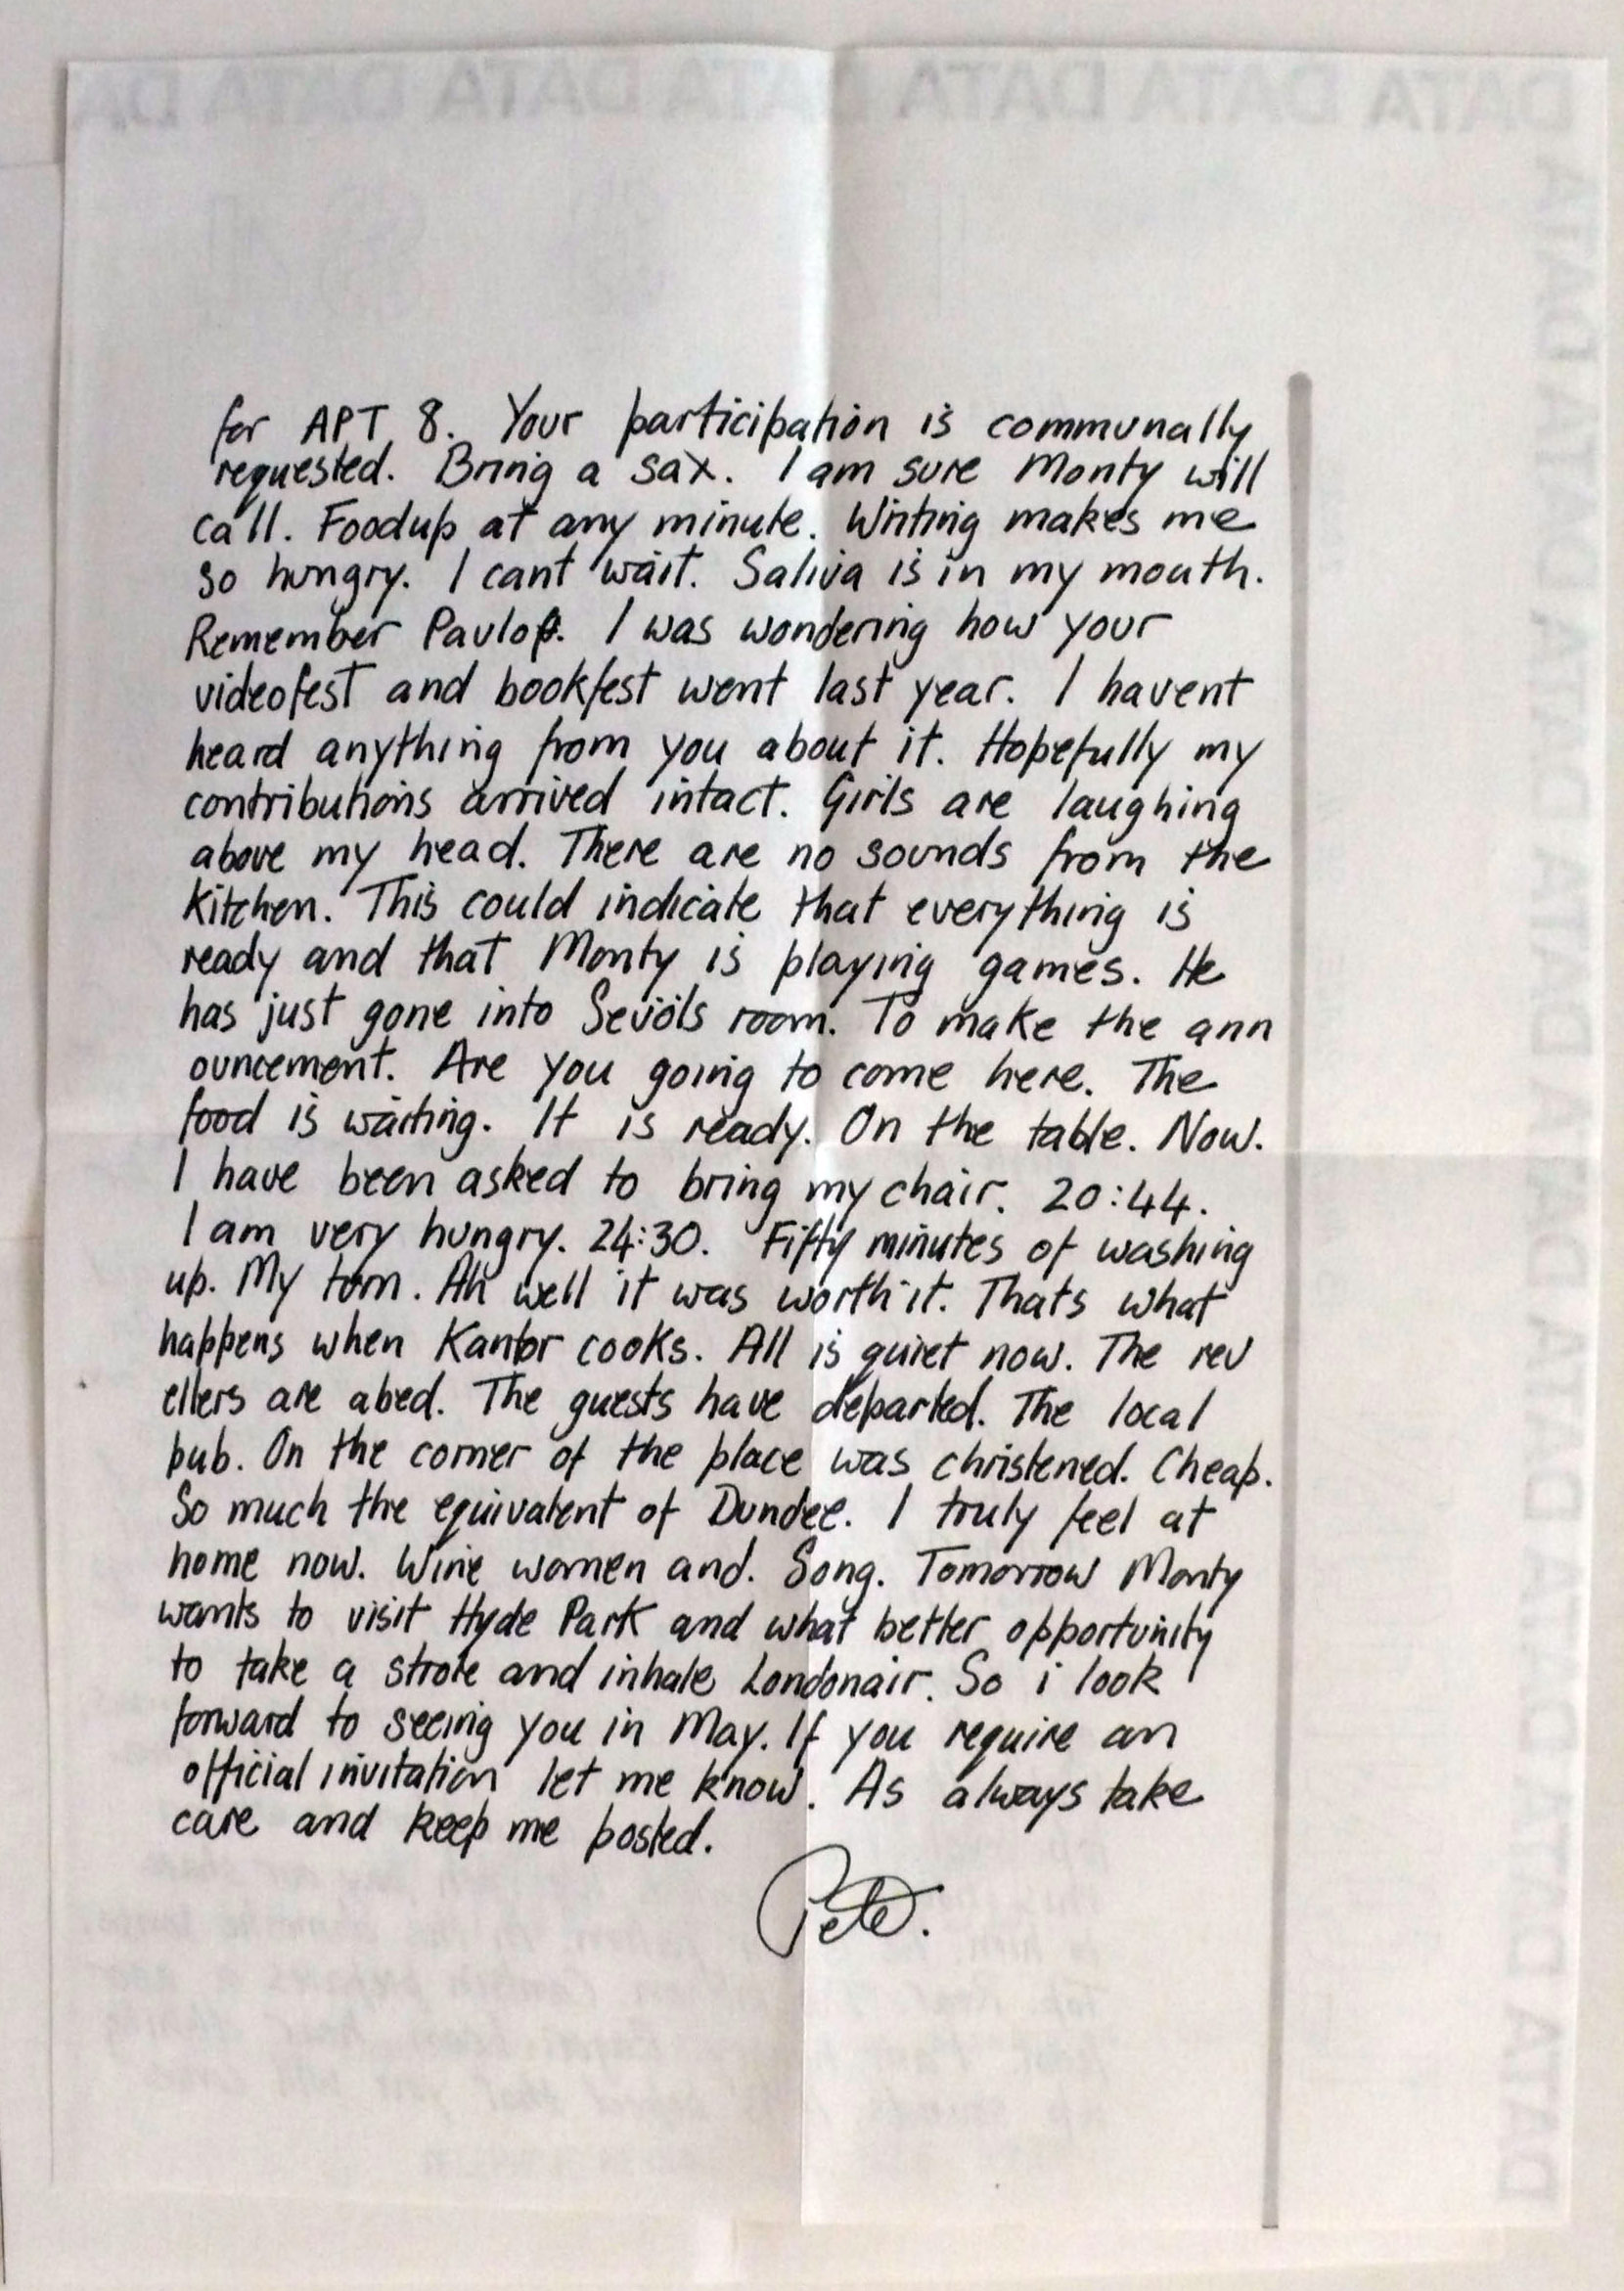 DATA DATA DATA DATA DATA DATA DA
for APT 8. Your participation is communally
requested. Bring a sax. I am sure Monty will
call. Foodup at any minute. Writing makes me
so hungry. I cant wait. Saliva is in my mouth.
Remember Pavlof. I was wondering how your
videofest and bookfest went last year. I havent
heard anything from you about it. Hopefully my
contributions arrived intact. Girls are laughing
above my head. There are no sounds from the
kitchen. This could indicate that everything is
ready and that Monty is playing games. He
has just gone into Sevöls room. To make the ann
ouncement. Are you going to come here. The
food is waiting. It is ready. On the table. Now.
I have been asked to bring my chair. 20:44.
I am very hungry. 24:30. Fifty minutes of washing
up. My turn. Ah well it was worth it. Thats what
happens when Kantor cooks. All is quiet now. The rev
ellers are abed. The guests have departed. The local
pub. On the corner of the place was christened. Cheap.
So much the equivalent of Dundee. I truly feel at
home now. Wine women and. Song. Tomorrow Monty
wants to visit Hyde Park and what better opportunity
to take a strole and inhale Londonair. So i look
forward to seeing you in May. If you require an
official invitation let me know. As always take
care and keep me posted.
Pete.